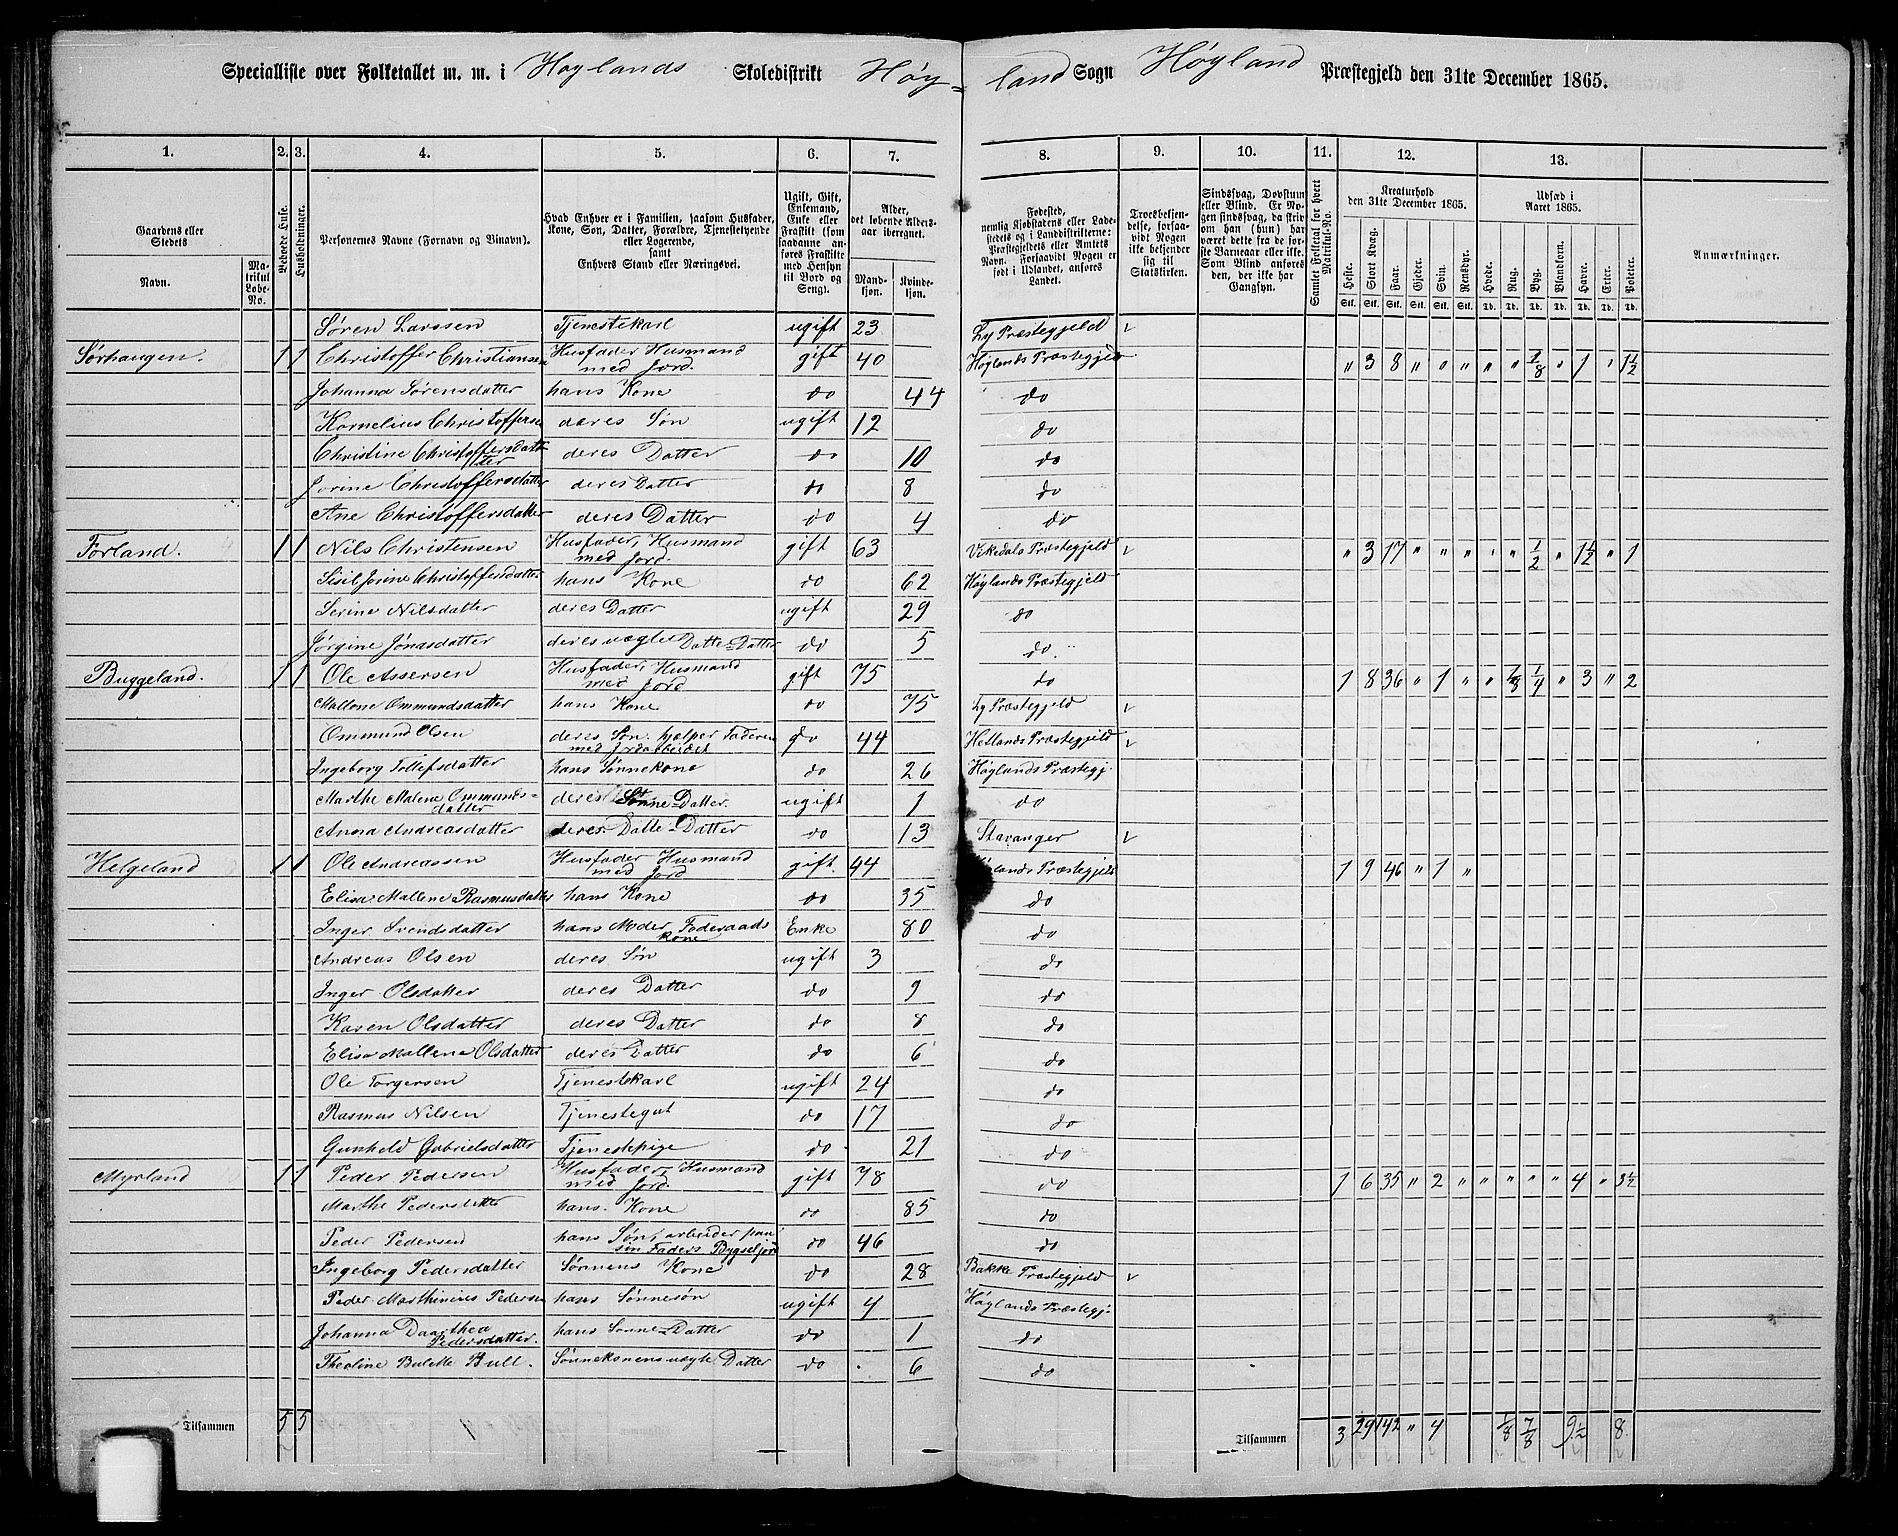 Specialliste over Folketallet m. m. i Høylands Skoledistrikt Høy=
land Sogn Høyland Præstegjeld den 31te December 1865.
1. 2. 3. 4. 5. 6. 7. 8. 9. 10. 11. 12. 13.
Gaardens eller Stedets
Navn.
Matrikul Løbe-No.
Beboede Huse.
Husholdninger.
Personernes Navne (Fornavn og Binavn).
Hvad Enhver er i Familien, saasom Husfader, Kone, Søn, Datter, Forældre, Tjenestetyende eller Logerende, samt Enhvers Stand eller Næringsvei.
Ugift, Gift, Enkemand, Enke eller Fraskilt (som saadanne anføres Fraskilte med Hensyn til Bord og Seng).
Alder, det løbende Aldersaar iberegnet.
Mandkjøn. Kvindekjøn.
Fødested, nemlig Kjøbstadens eller Ladestedets og i Landdistrikterne: Præstegjeldets eller Amtets Navn. Forsaavidt Nogen er født i Udlandet, anføres Landet.
Troesbekjendelse, forsaavidt Nogen ikke bekjender sig til Statskirken.
Sindssvag, Døvstum eller Blind. Er Nogen sindssvag, da skriv om han (hun) har været dette fra de første Barneaar eller ikke. Som Blind anføres den, der ikke har Gangsyn.
Samlet Folketal for hvert Matrikul-No.
Kreaturhold den 31te December 1865.
Heste. Stort Kvæg. Faar. Gjeder. Svin. Rensdyr.
Udsæd i Aaret 1865.
Hvede. Rug. Byg. Blandkorn. Havre. Erter. Poteter.
Anmærkninger.
Søren Larssen Tjenestekarl ugift 23 Ly Præstegjeld
Sørhaugen. 1 1 Christoffer Christiansen Husfader Husmand med Jord. gift 40 Høylands Præstegjeld " 3 8 " " " " " 1/8 " 1 " 1½
Johanna Sørensdatter hans Kone do 44 do
Kornelius Christoffersen deres Søn ugift 12 do
Christine Christoffersdatter deres Datter do 10 do
Jorine Christoffersdatter deres Datter do 8 do
Ane Christoffersdatter deres Datter do 4 do
Forland. 1 1 Nils Christensen Husfader, Husmand med Jord. gift 63 Vikedals Præstegjeld " 3 17 " " " " " 1/2 " 1½ " 1
Sisil Jorine Christoffersdatter hans Kone do 62 Høylands Præstegjeld
Serine Nilsdatter deres Datter ugift 29 do
Jørgine Jonasdatter deres uægte Datte=Datter do 5 do
Buggeland. 1 1 Ole Assersen Husfader, Husmand med Jord gift 75 do 1 8 36 " 1 " " 1/8 1/4 " 3 " 2
Mallene Ommundsdatter hans Kone do 75 Ly Præstegjeld
Ommund Olsen deres Søn, hjelper Faderen med Jordarbeidet do 44 Hetlands Præstegjeld
Ingeborg Tollefsdatter hans Sønnekone do 26 Høylands Præstegj.
Marthe Malene Ommundsdatter deres Sønne=Datter. ugift 1 do
Anna Andreasdatter deres Datte=Datter do 13 Stavanger
Helgeland 1 1 Ole Andreassen Husfader Husmand med Jord gift 44 Høylands Præstegjeld 1 9 46 " 1 "
Elisa Mallene Rasmusdatter hans Kone do 35 do
Inger Svendsdatter hans Moder Føderaads kone Enke 80 do
Andreas Olsen deres Søn ugift 3 do
Inger Olsdatter deres Datter do 9 do
Karen Olsdatter deres Datter do 8 do
Elisa Mallene Olsdatter deres Datter do 6 do
Ole Torgersen Tjenestekarl ugift 24 do
Rasmus Nilsen Tjenestegut do 17 do
Gunhild Gabrielsdatter Tjenestepige do 21 do
Myrland 1 1 Peder Pedersen Husfader, Husmand med Jord. gift 78 do 1 6 35 " 2 " " " " " 4 " 3½
Marthe Pedersdatter hans Kone do 85 do
Peder Pedersen hans Søn, arbeider paa sin Faders Bygseljord do 46 do
Ingeborg Pedersdatter Sønnens Kone do 28 Bakke Præstegjeld
Peder Marthinius Pedersen hans Sønnesøn ugift 4 Høylands Præstegj.
Johanna Daarthea Pedersdatter. hans Sønne=Datter do 1 do
Theoline Bulette Bull. Sønnekonens uægte Datter do 6 do
Tilsammen 5 5
Tilsammen 3 29 142 " 4 1/8 7/8 9½ 8